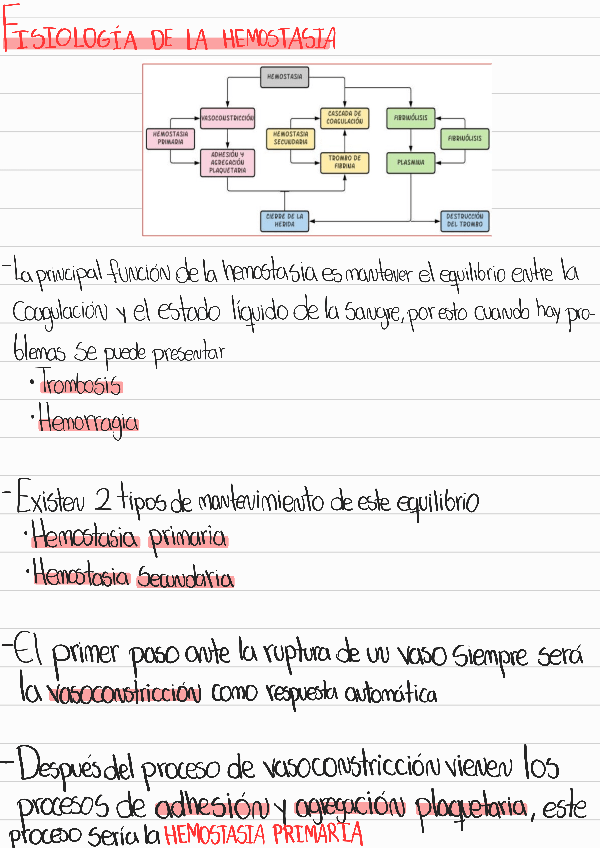 FISIOLOGÍA DE LA HEMOSTASIA
HEMOSTASIA
VASOCONSTRICCIÓN
CASCADA DE
COAGULACIÓN
FIBRINÓLISIS
HEMOSTASIA
PRIMARIA
HEMOSTASIA
SECUNDARIA
FIBRINÓLISIS
ADHESIÓN Y
AGREGACIÓN
PLAQUETARIA
TROMBO DE
FIBRINA
PLASMINA
CIERRE DE LA
HERIDA
DESTRUCCIÓN
DEL TROMBO
-La principal función de la hemostasia es mantener el equilibrio entre la
Coagulación y el estado líquido de la sangre, por esto cuando hay pro-
blemas se puede presentar
• Trombosis
• Hemorragia
-Existen 2 tipos de mantenimiento de este equilibrio
• Hemostasia primaria
• Hemostasia Secundaria
-El primer paso ante la ruptura de un vaso siempre será
la vasoconstricción como respuesta automática
-Después del proceso de vasoconstricción vienen los
procesos de adhesión y agregación plaquetaria, este
proceso sería la HEMOSTASIA PRIMARIA